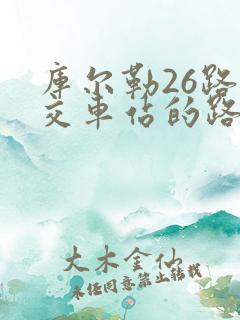 库尔勒26路
交车占的路
大木金仙
未经同意禁止转载